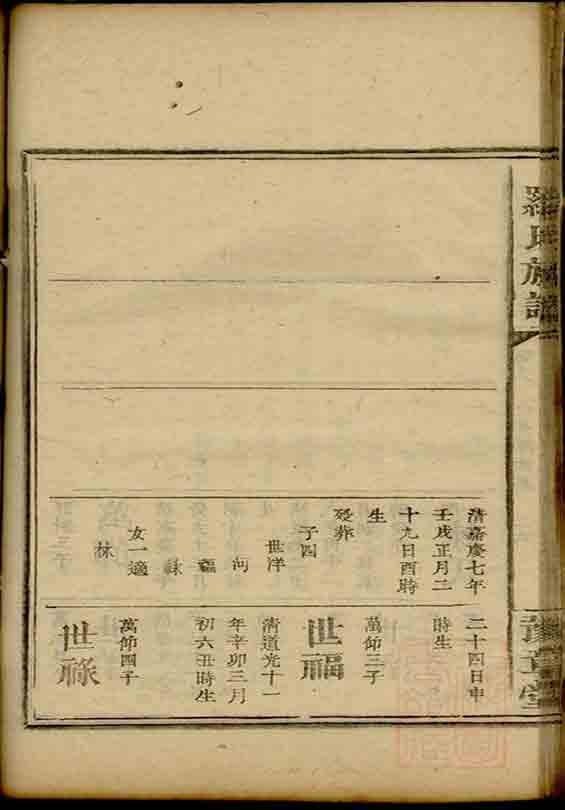 羅氏族譜
豫章堂
清嘉慶七年
壬戌正月二
十九日酉時
生
歿葬
子四
世洋
河
福
祿
女一適
林
二十四日申
時生
萬節三子
世福
清道光十一
年辛卯三月
初六丑時生
萬節四子
世祿